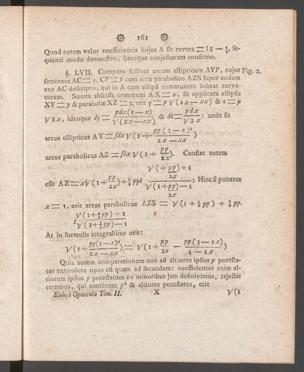 161
Quod autem valor coefficientis hujus A sit revera = l 2 — ¼, se-
quenti modo demonstro, hancque conjecturam confirmo.
§. LVII. Comparo scilicet arcum ellipticum AYP, cujus Fig. 2.
semiaxes AC = 1, CP = p cum arcu parabolico AZS super eodem
axe AC descripto, qui in A cum ellipsi communem habeat curva-
turam. Sumta abscissa communi AX = x, sit applicata ellipsis
XY = y & parabolæ XZ = z, erit y = p √(2x—xx) & z = p
√2x, ideoque dy = pdx(1—x) / √(2x—xx) & dz = pdx / √2x : unde fit
arcus ellipticus AY = ∫dx √(1 + pp(1—x)² / 2x—xx)
arcus parabolicus AZ = ∫dx √(1 + pp / 2x). Constat autem
esse AZ = x√(1 + pp / 2x) + ¼pp l √(1 + pp / 2x) + 1 / √(1 + pp / 2x) — 1 : Hinc si ponatur
x = 1, erit arcus parabolicus AZS = √(1 + ½pp) + ¼pp.
l √(1 + ½pp) + 1 / √(1 + ½pp) — 1
At in formulis integralibus erit:
√(1 + pp(1—x)² / 2x—xx) = √(1 + pp / 2x — pp(3—2x) / 4—2x)
Quia autem comparationem non ad altiores ipsius p potesta-
tes extendere opus est quam ad secundam: coefficientes enim al-
tiorum ipsius p potestatum ex minoribus jam definivimus, rejectis
terminis, qui continent p⁴ & altiores potestates, erit
Euleri Opuscula Tom. II. X √(1